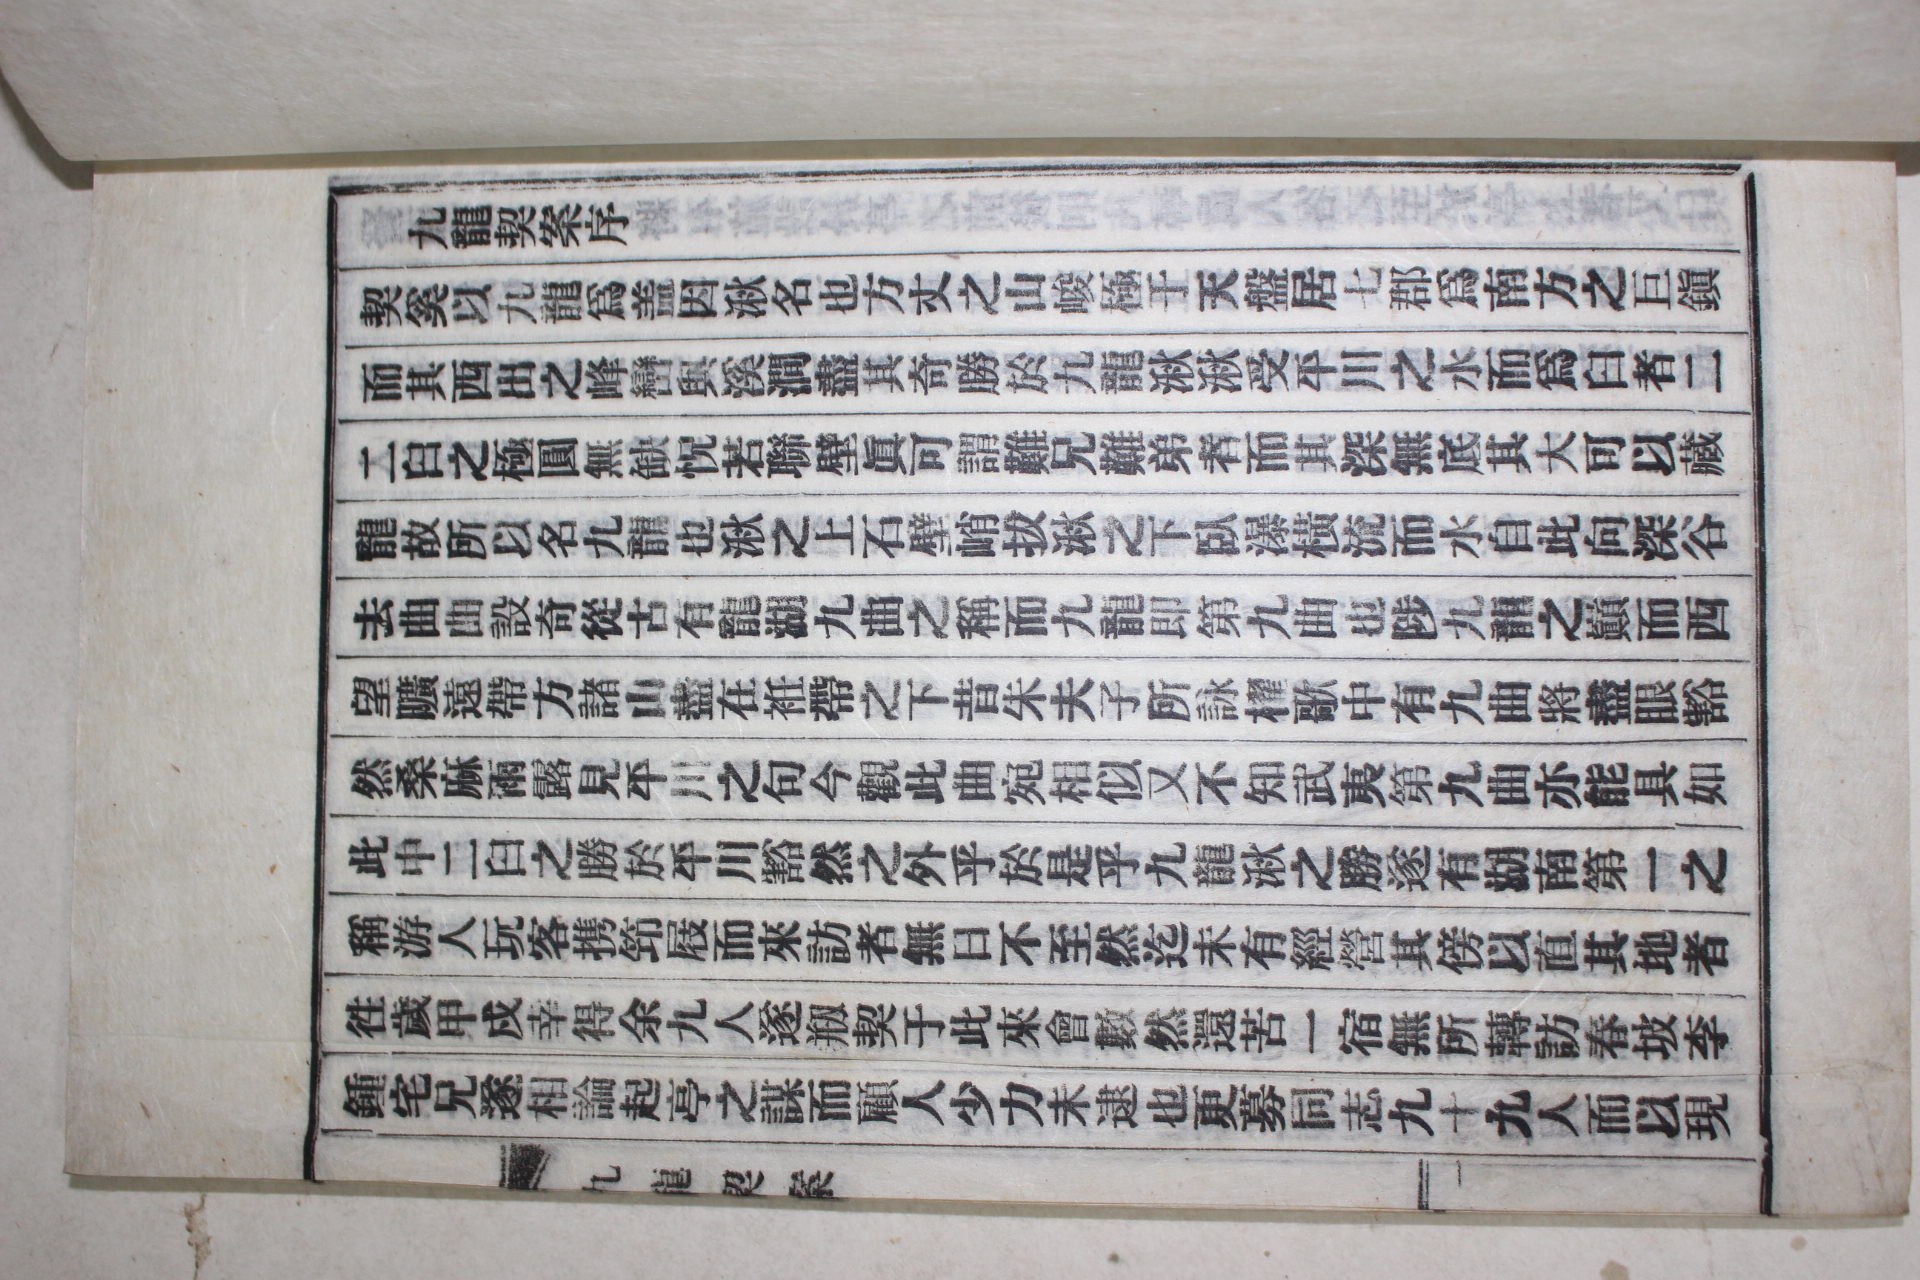 九龍契案序
契奚以九龍爲盖因湫名也方丈之山峻極于天盤居七郡爲南方之巨鎭
而其西出之峰巒與溪澗盡其奇勝於九龍湫湫受平川之水而爲臼者二
二臼之極圓無缺怳若聯璧眞可謂難兄難弟者而其深無底其大可以藏
龍故所以名九龍也湫之上石壁峭拔湫之下臥瀑橫流而水自此向深谷
去曲曲設奇從古有龍湖九曲之稱而九龍即第九曲也陟九龍之巓而西
望曠遠帶方諸山盡在袵帶之下昔朱夫子所詠櫂歌中有九曲將盡眼豁
然桑麻雨露見平川之句今觀此曲宛相似又不知武夷第九曲亦能具如
此中二臼之勝於平川豁然之外乎於是乎九龍湫之勝遂有湖南第一之
稱游人玩客携筇屐而來訪者無日不至然迄未有經營其傍以直其地者
往歲甲戍幸得余九人遂刱契于此來會數然還苦一宿無所轉訪春坡李
鍾宅兄遂相論起亭之謀而顧人少力未逮也更募同志九十九人而以現
九龍契案
一